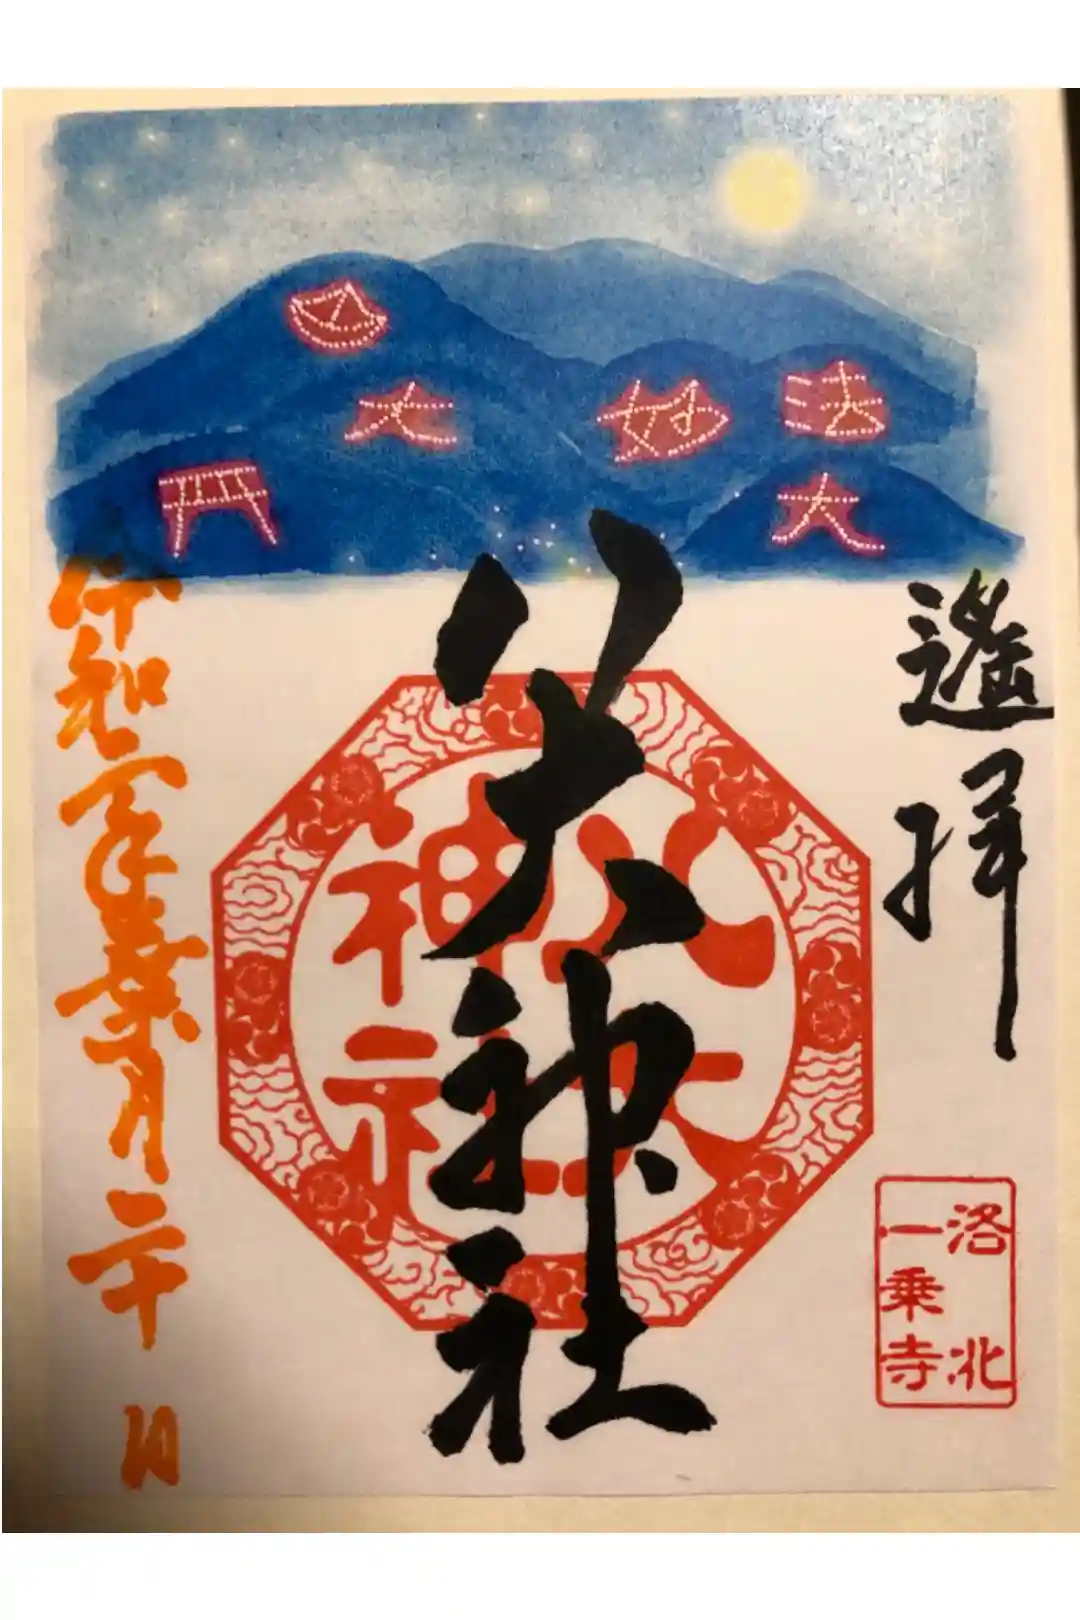 法
妙
大
大
遙拝
八大神社
八大
神社
洛北
一乗寺
令和 年葉月二十日